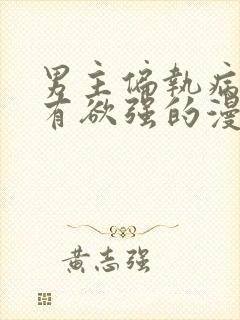 男主偏执病
有欲强的漫
黄志强